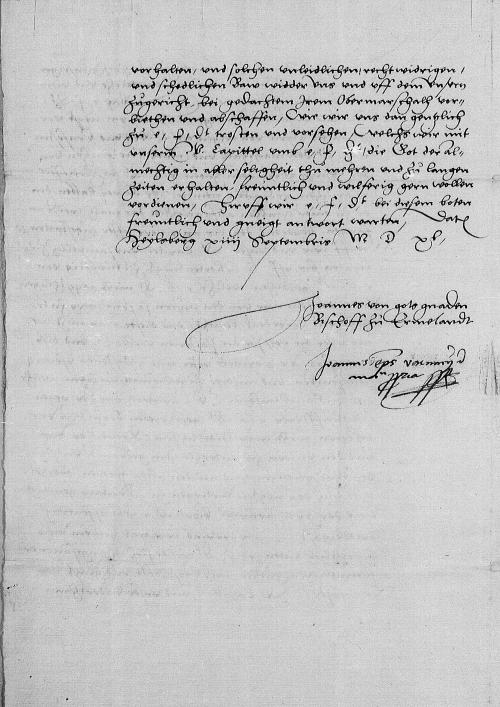 vorhalten, und solchen unleidlichen, rechtwidrigen,
und schedlichen Baw wieder uns und uff dem unsern
zugericht, bei gedachtem Irem Obermarschalh vor-
biethen und abschaffen, Wie wir uns dan gentzlich
zu e. f. d. trosten und vorsehen, Welchs wir mit
unserm W. Capittel umb e. f. d., die Got der al-
mechtig in aller seligheit thu mehren und zu langen
zeiten erhalten, freuntlich und wilferig gern wollen
vordienen, Hiruff wir e. f. d. bei diesem boten
freuntlich und gneigt antwort warten, Dat.
Heylsberg xiiii Septembris M D xl.
Joannes von gots gnaden
Bischoff zu Ermelandt
Joannes eps varmien
manu ppria sspt